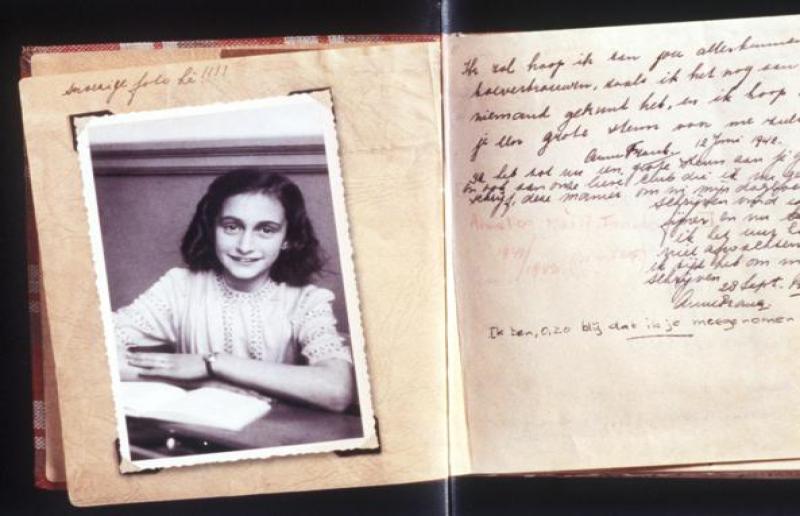 snoezige foto hè!!!!
Ik zal hoop ik aan jou alles kunnen
toevertrouwen, zoals ik het nog aan
niemand gekund heb, en ik hoop
je een grote steun voor me zult
Anne Frank. 12 Juni 1942.
Ik heb tot nu een grote steun aan je
en ook aan onze lieve club die ik nu
schrijf, deze manier om in mijn dagboek
schrijven vind
fijner en nu
ik het uur
niet afwachten
ik tijd heb om
schrijven
28 Sept.
Anne Frank
Ik ben, o, zo blij dat ik je meegenomen